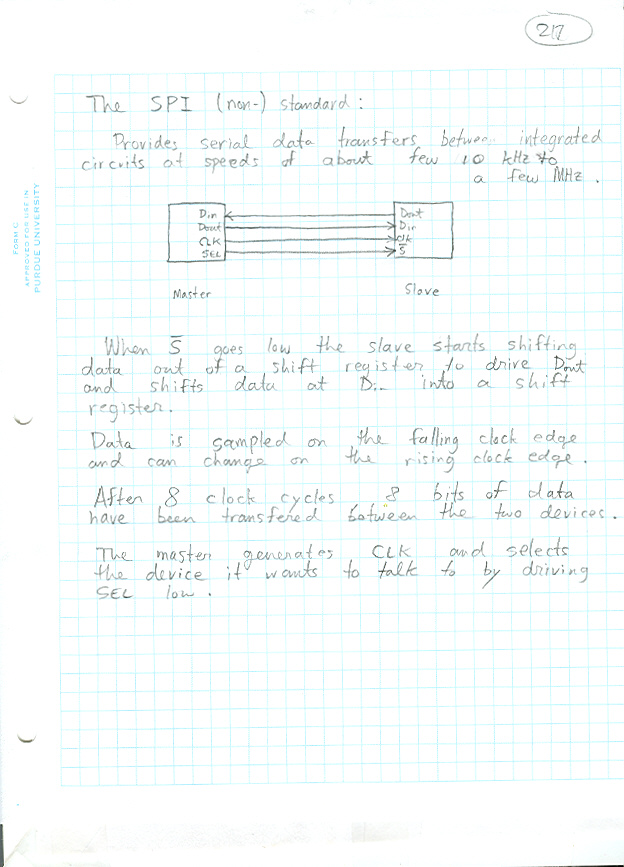 217
FORM C
APPROVED FOR USE IN
PURDUE UNIVERSITY
The SPI (non-) standard:
Provides serial data transfers between integrated
circuits at speeds of about few 10 kHz to
a few MHz.
Din Dout
Dout Din
CLK Clk
SEL S̅
Master Slave
When S̅ goes low the slave starts shifting
data out of a shift register to drive Dout
and shifts data at Din into a shift
register.
Data is sampled on the falling clock edge
and can change on the rising clock edge.
After 8 clock cycles 8 bits of data
have been transfered between the two devices.
The master generates CLK and selects
the device it wants to talk to by driving
SEL low.